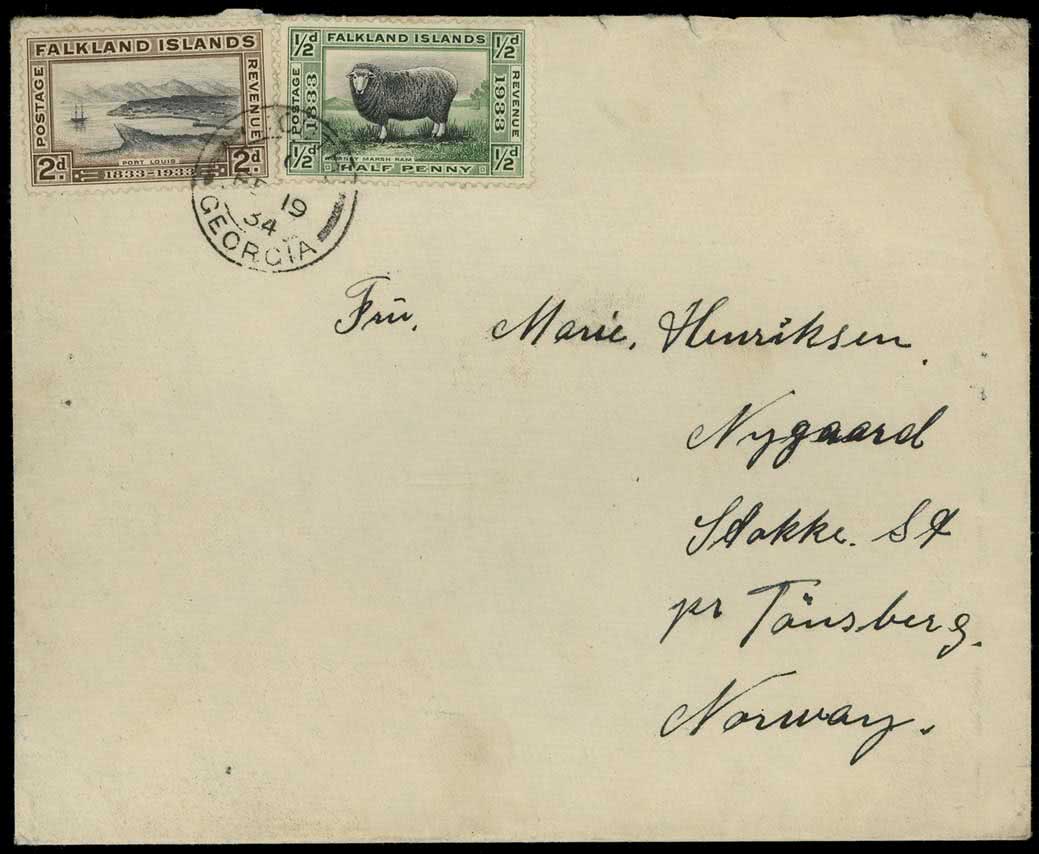 FALKLAND ISLANDS
POSTAGE
REVENUE
2d.
PORT LOUIS
1833-1933
2d.
½d
FALKLAND ISLANDS
½d
POSTAGE
1833
1933
REVENUE
½d
ROMNEY MARSH RAM
HALF PENNY
½d
19
34
GEORGIA
Frū, Marie, Henriksen.
Nygaard
Stokke. St
pr Tönsberg.
Norway.